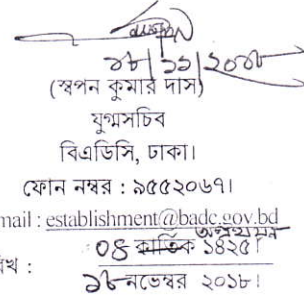 ১৮/১১/২০১৮
(স্বপন কুমার দাস)
যুগ্মসচিব
বিএডিসি, ঢাকা।
ফোন নম্বর : ৯৫৫২০৬৭।
mail : establishment@badc.gov.bd
অগ্রহায়ন
০৪ কার্তিক ১৪২৫।
খ :
১৮ নভেম্বর ২০১৮।